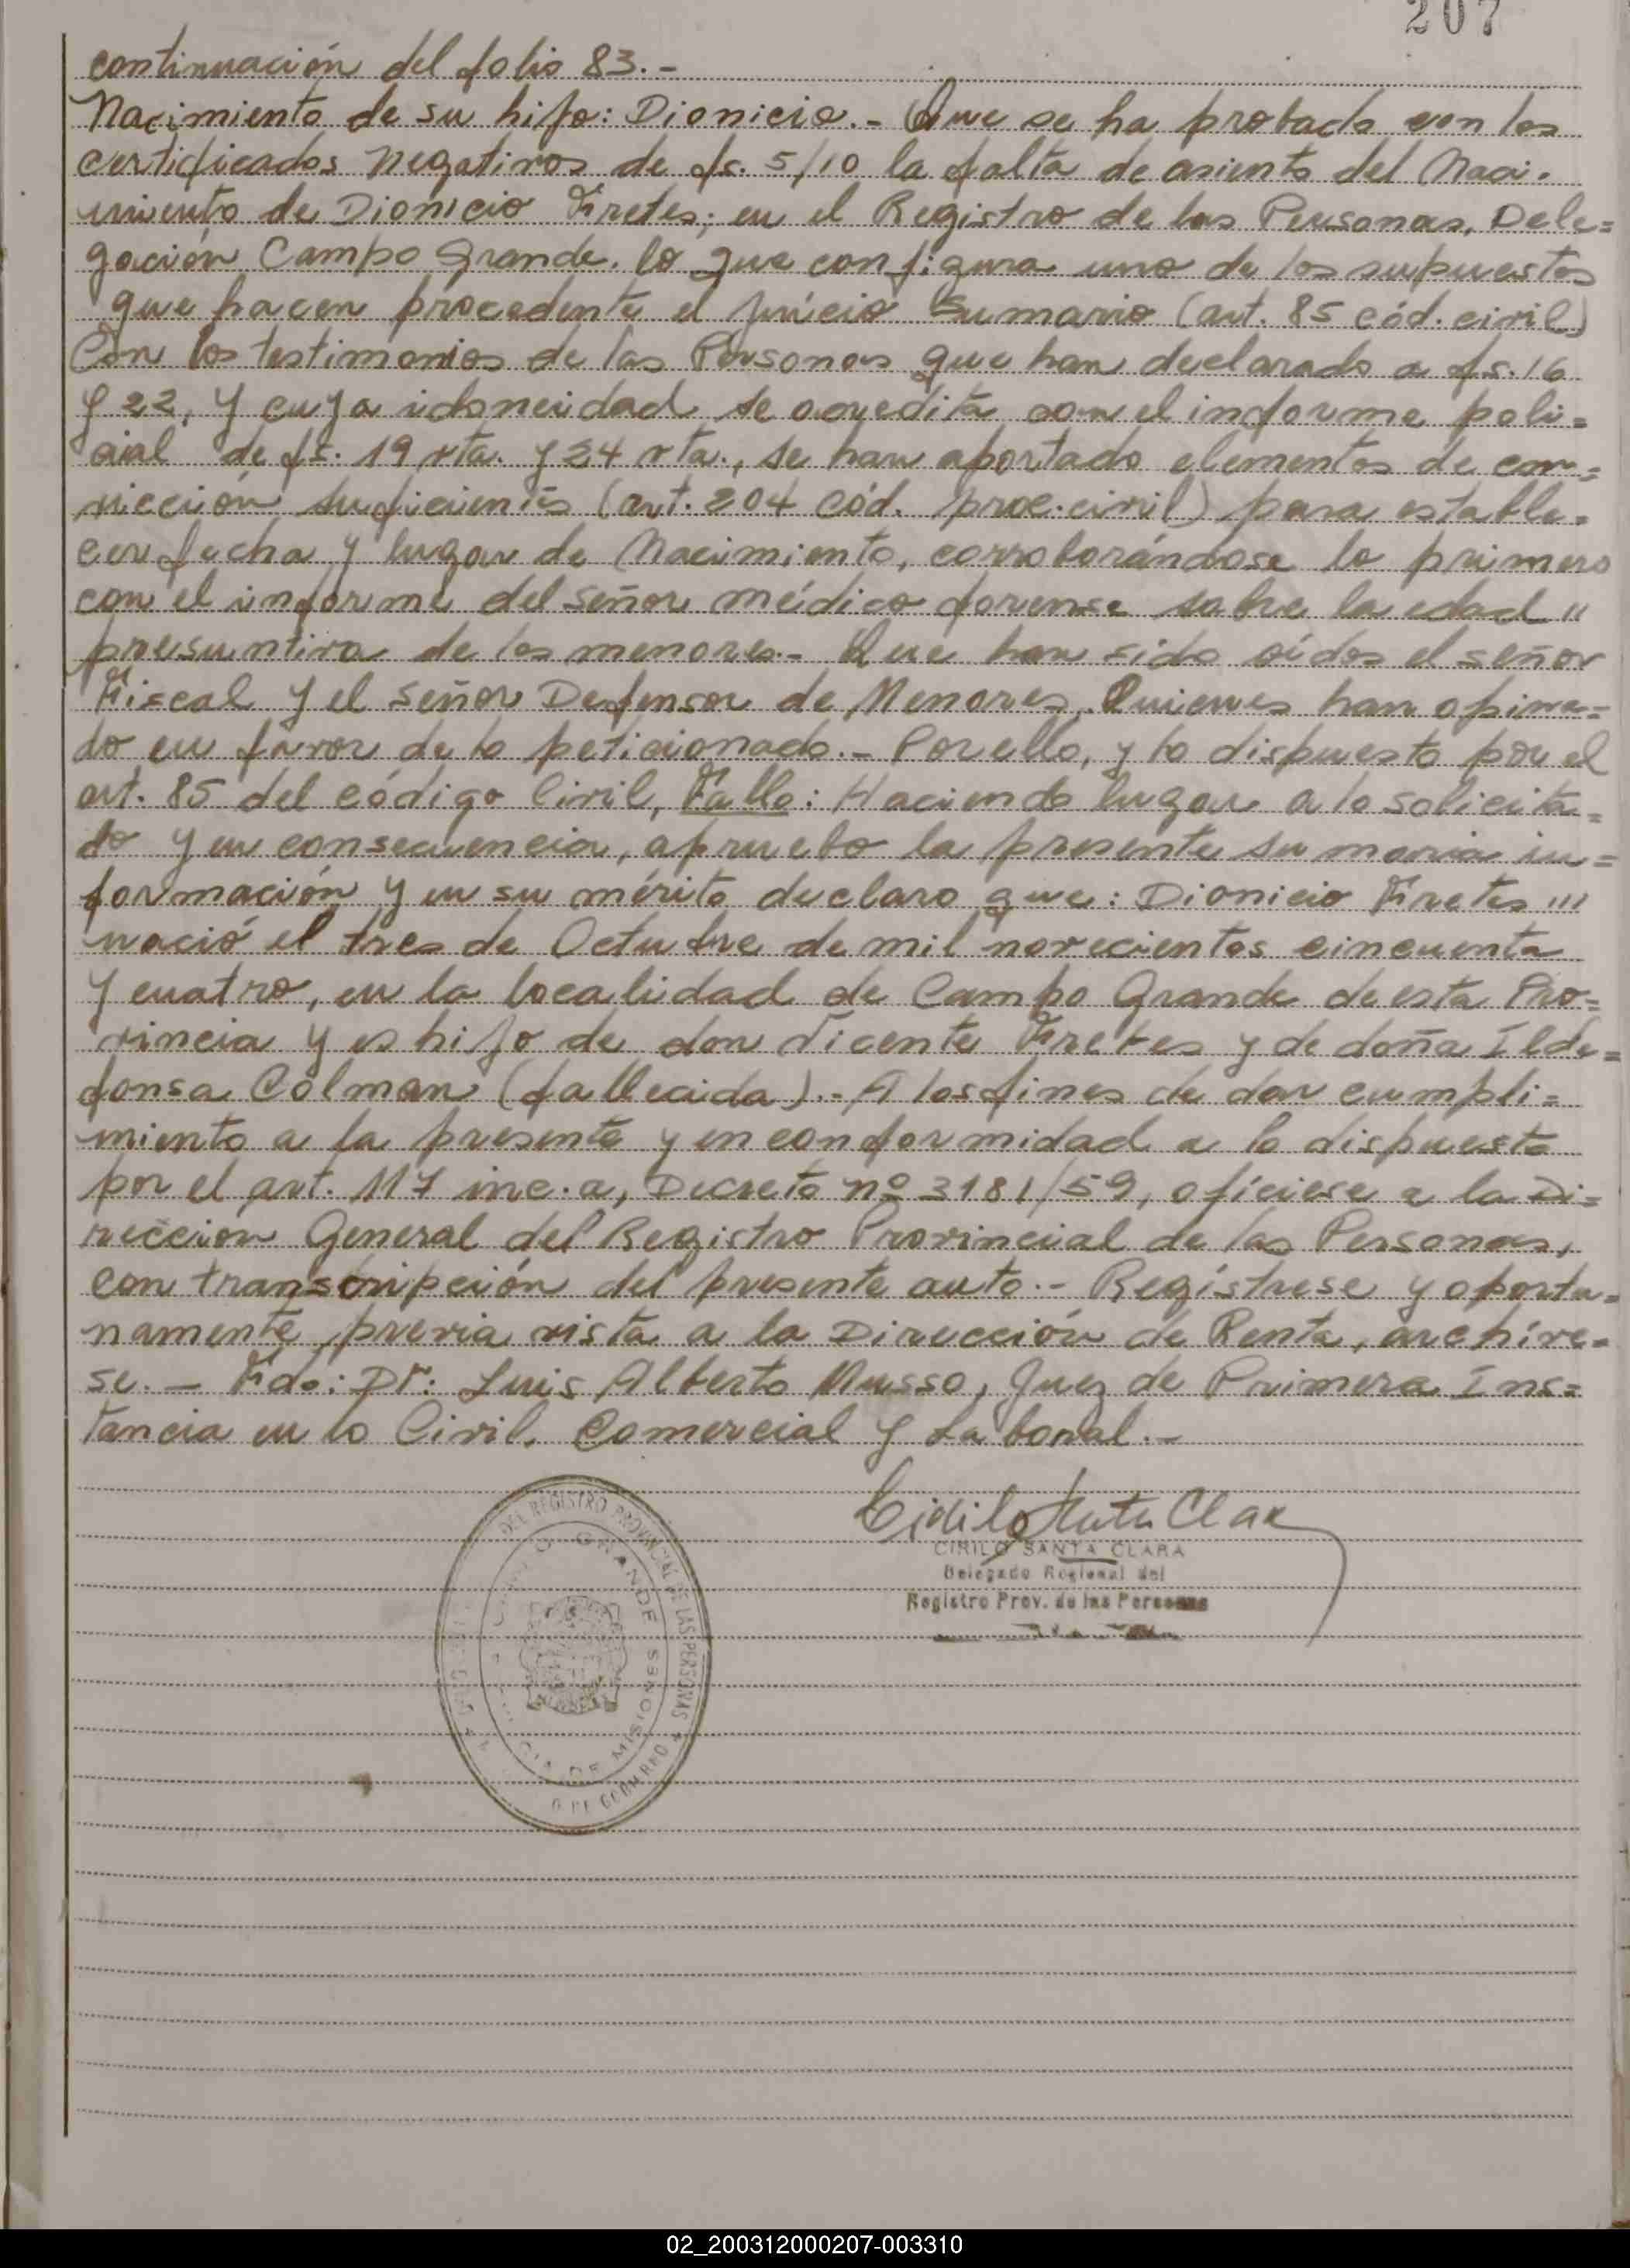 207
continuación del folio 83.-
Nacimiento de su hijo: Dionicio.- Que se ha probado con los
certificados negativos de fs. 5/10 la falta de asiento del Naci-
miento de Dionicio Fretes; en el Registro de las Personas, Dele=
gación Campo Grande. lo que configura uno de los supuestos
que hacen procedente el juicio Sumario (art. 85 cód. civil)
Con los testimonios de las Personas que han declarado a fs. 16
y 22, y cuya idoneidad se acredita con el informe poli=
cial de fs. 19 vta. y 24 vta., se han aportado elementos de con=
vicción suficientes (art. 204 Cód. proc. civil) para estable-
cer fecha y lugar de Nacimiento, corroborándose lo primero
con el informe del señor médico forense sobre la edad "
presuntiva de los menores.- Que han sido oídos el señor
Fiscal y el señor Defensor de Menores, Quienes han opina=
do en favor de lo peticionado.- Por ello, y lo dispuesto por el
art. 85 del código Civil, Fallo: Haciendo lugar a lo solicita=
do y en consecuencia, apruebo la presente sumaria in=
formación y en su mérito declaro que: Dionicio Fretes "'
nació el tres de Octubre de mil novecientos cincuenta
y cuatro, en la localidad de Campo Grande de esta Pro=
vincia y es hijo de don Vicente Fretes y de doña Ilde=
fonsa Colman (fallecida).- A los fines de dar cumpli=
miento a la presente y en conformidad a lo dispuesto
por el art. 117 inc. a, Decreto nº 3181/59, ofíciese a la Di=
rección General del Registro Provincial de las Personas,
con transcripción del presente auto.- Regístrese y oportu=
namente, previa vista a la Dirección de Renta, archíve=
se.- Fdo: Dr: Luis Alberto Musso, Juez de Primera Ins=
tancia en lo Civil, Comercial y Laboral.-
CIRILO SANTA CLARA
Delegado Regional del
Registro Prov. de las Personas
DEL REGISTRO PROVINCIAL DE LAS PERSONAS
GRANDE
DE MISIONES
02_200312000207-003310